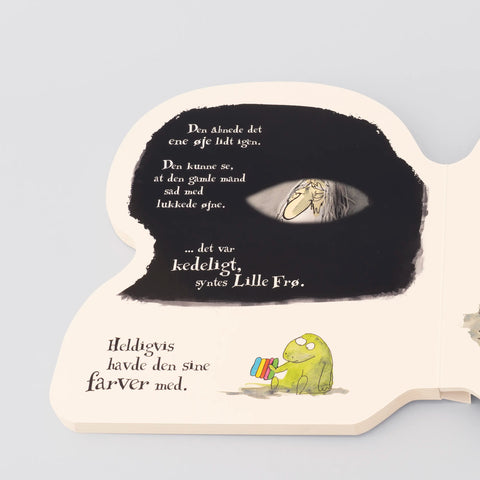 Den åbnede det
ene øje lidt igen.
Den kunne se,
at den gamle mand
sad med
lukkede øjne.
... det var
kedeligt,
syntes Lille Frø.
Heldigvis
havde den sine
farver med.